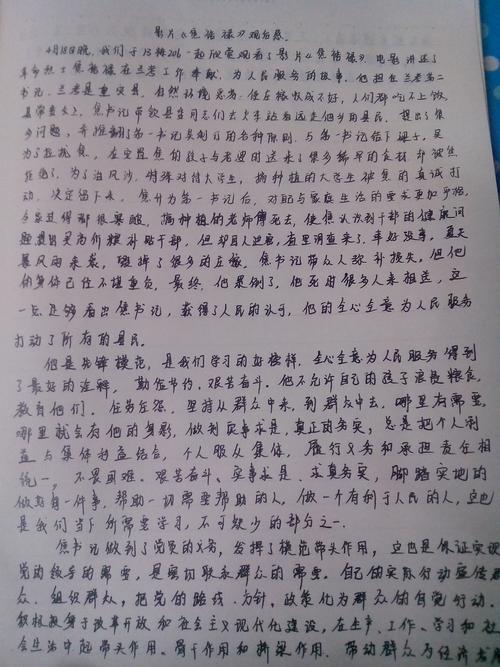 影片《焦裕禄》观后感
4月18日晚,我们于13栋206一起欣赏观看了影片《焦裕禄》.电影讲述了
革命烈士焦裕禄在兰考工作奉献,为人民服务的故事.他担任兰考第二
书记.兰考是重灾县.自然环境恶劣.使庄稼收成不好,人们都吃不上饭,
焦书记带领县里同志们去火车站看远走他乡的县民.提出了很
多问题,并推翻了第一书记关制订的各种原则.与第一书记结下梁子,灾
为了拉拢焦,在灾里焦的孩子与老婆时送来了很多稀罕的食材.却被焦
拒绝了.为了治风沙,特殊对待大学生,搞种植的大学生被焦的真诚打
动.决定留下来.焦升为第一书记后,对自己与家庭生活的要求更加严格,
搞种植的老师傅死去,使焦认识到干部的健康问
题.提出买高价粮补贴干部,但却因人匿名,省里调查来了.幸好没事.夏天
暴风雨来袭,毁掉了很多的庄稼.焦书记带众人弥补损失,但他
的身体已经不堪重负,最终,他累倒了,他死时很多人来相送,这
一点足够看出焦书记,获得了人民的认可,他的全心全意为人民服务
打动了所有的县民.
他是先锋模范,是我们学习的好榜样.全心全意为人民服务得到
了最好的诠释,勤俭节约.艰苦奋斗.他不允许自己的孩子浪费粮食,
教育他们.任劳任怨.坚持从群众中来,到群众中去,哪里有需要,
哪里就会有他的身影,做到实事求是,真正的务实,总是把个人利
益与集体利益结合,个人服从集体,履行义务和承担责任相
统一,不畏困难.艰苦奋斗、实事求是.求真务实,脚踏实地的
做好每一件事,帮助一切需要帮助的人,做一个有利于人民的人,这也
是我们当下所需要学习,不可缺少的部分之一.
焦书记做到了党员的义务,发挥了模范带头作用,这也是保证实现
党的领导的需要,是密切联系群众的需要.自己的实际行动宣传群
众.组织群众,把党的路线.方针,政策化为群众的自觉行动.
积极投身于改革开放和社会主义现代化建设,在生产、工作、学习和社
会生活中起带头作用、骨干作用和桥梁作用.带动群众为经济发展